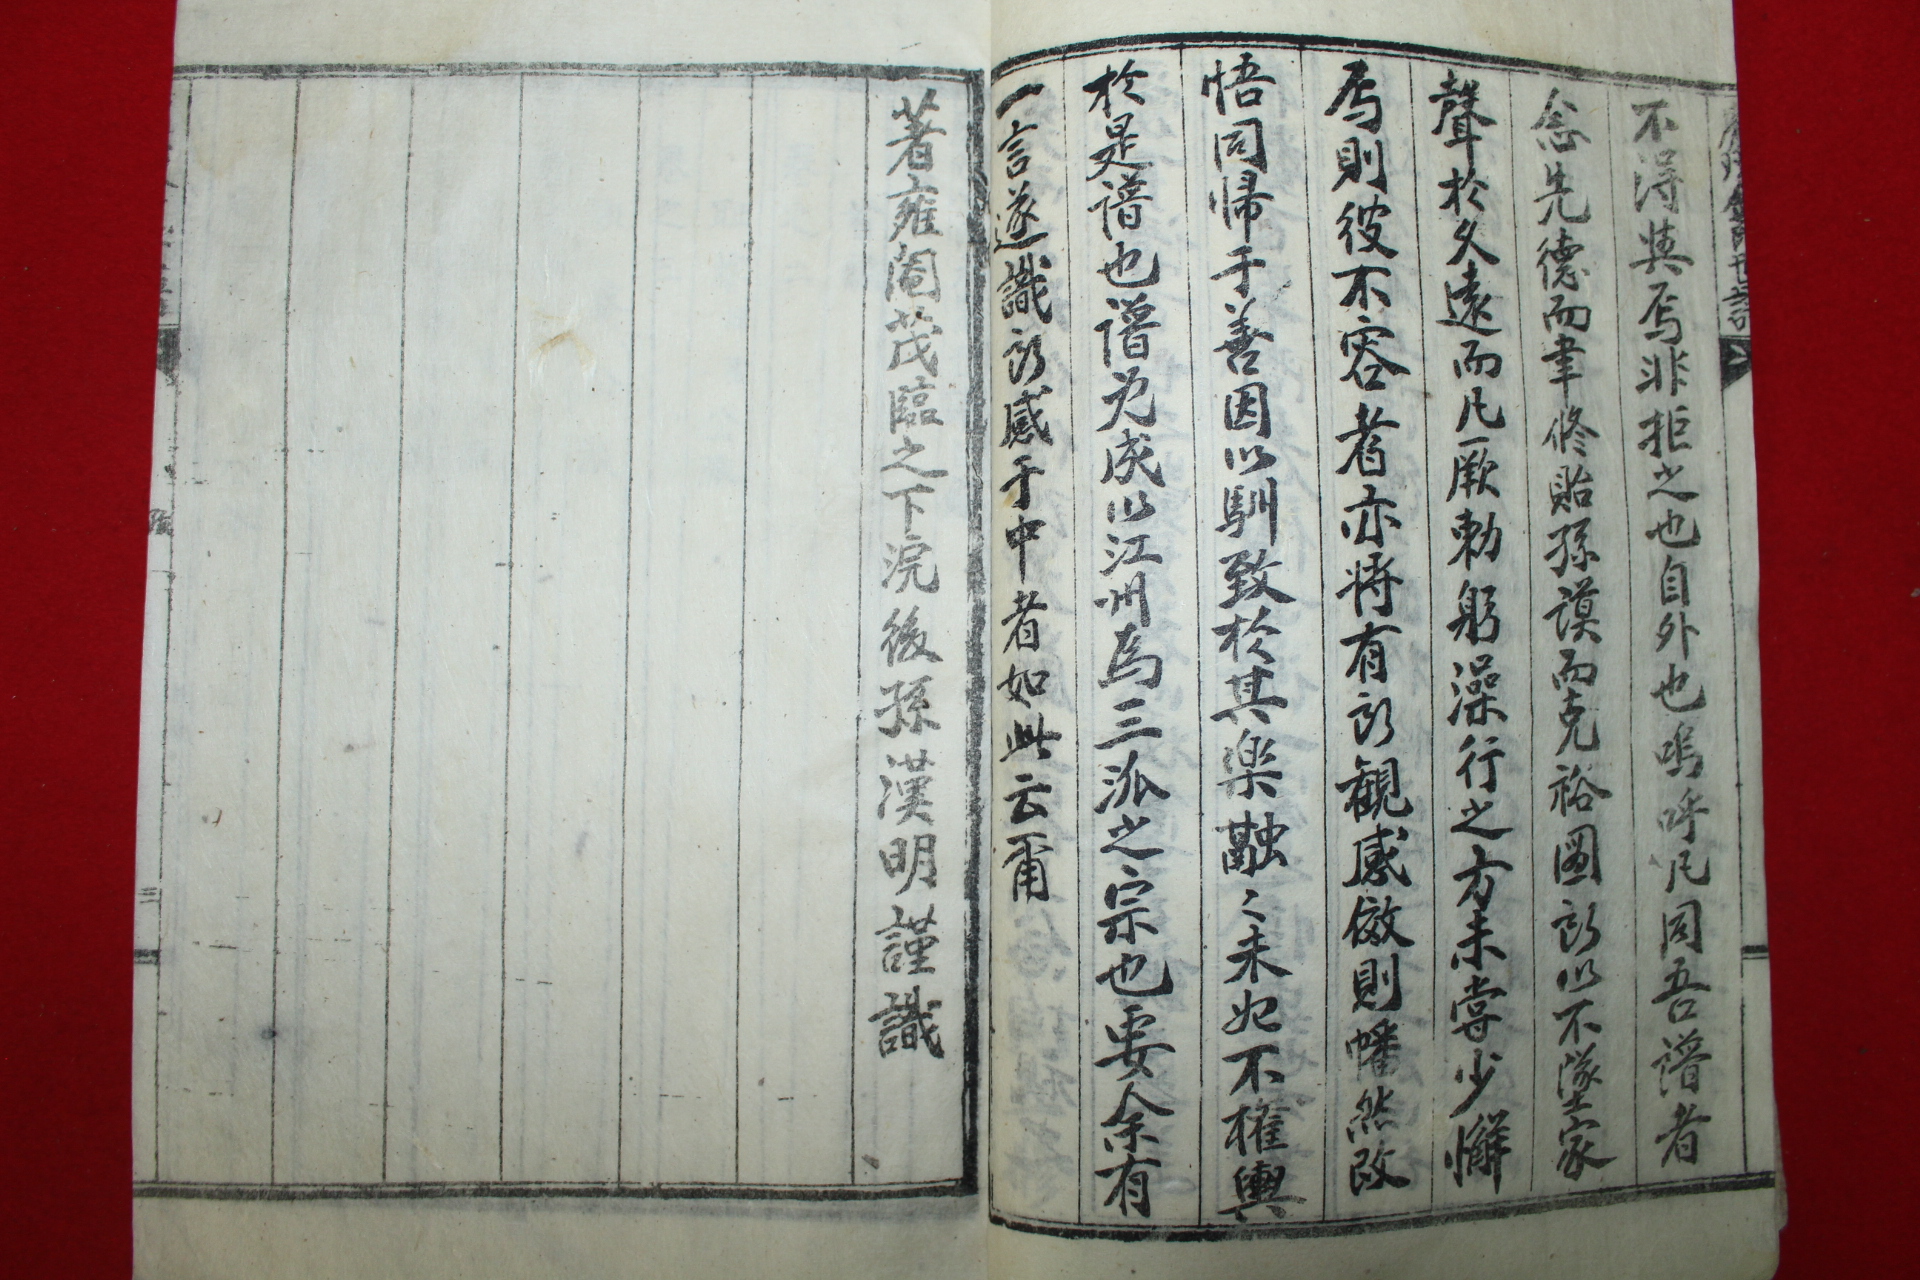 不得與焉非拒之也自外也嗚呼凡同吾譜者
念先德而聿修貽孫謨而克裕圖所以不墜家
聲於久遠而凡厥勅躬澡行之方未嘗少懈
焉則彼不容者亦將有所觀感倣則幡然改
悟同帰于善因以馴致於其楽融〻未必不權輿
於是譜也譜旣成以江州為三派之宗也要余有
一言遂識所感于中者如此云爾
著雍閹茂臨之下浣後孫漢明謹識